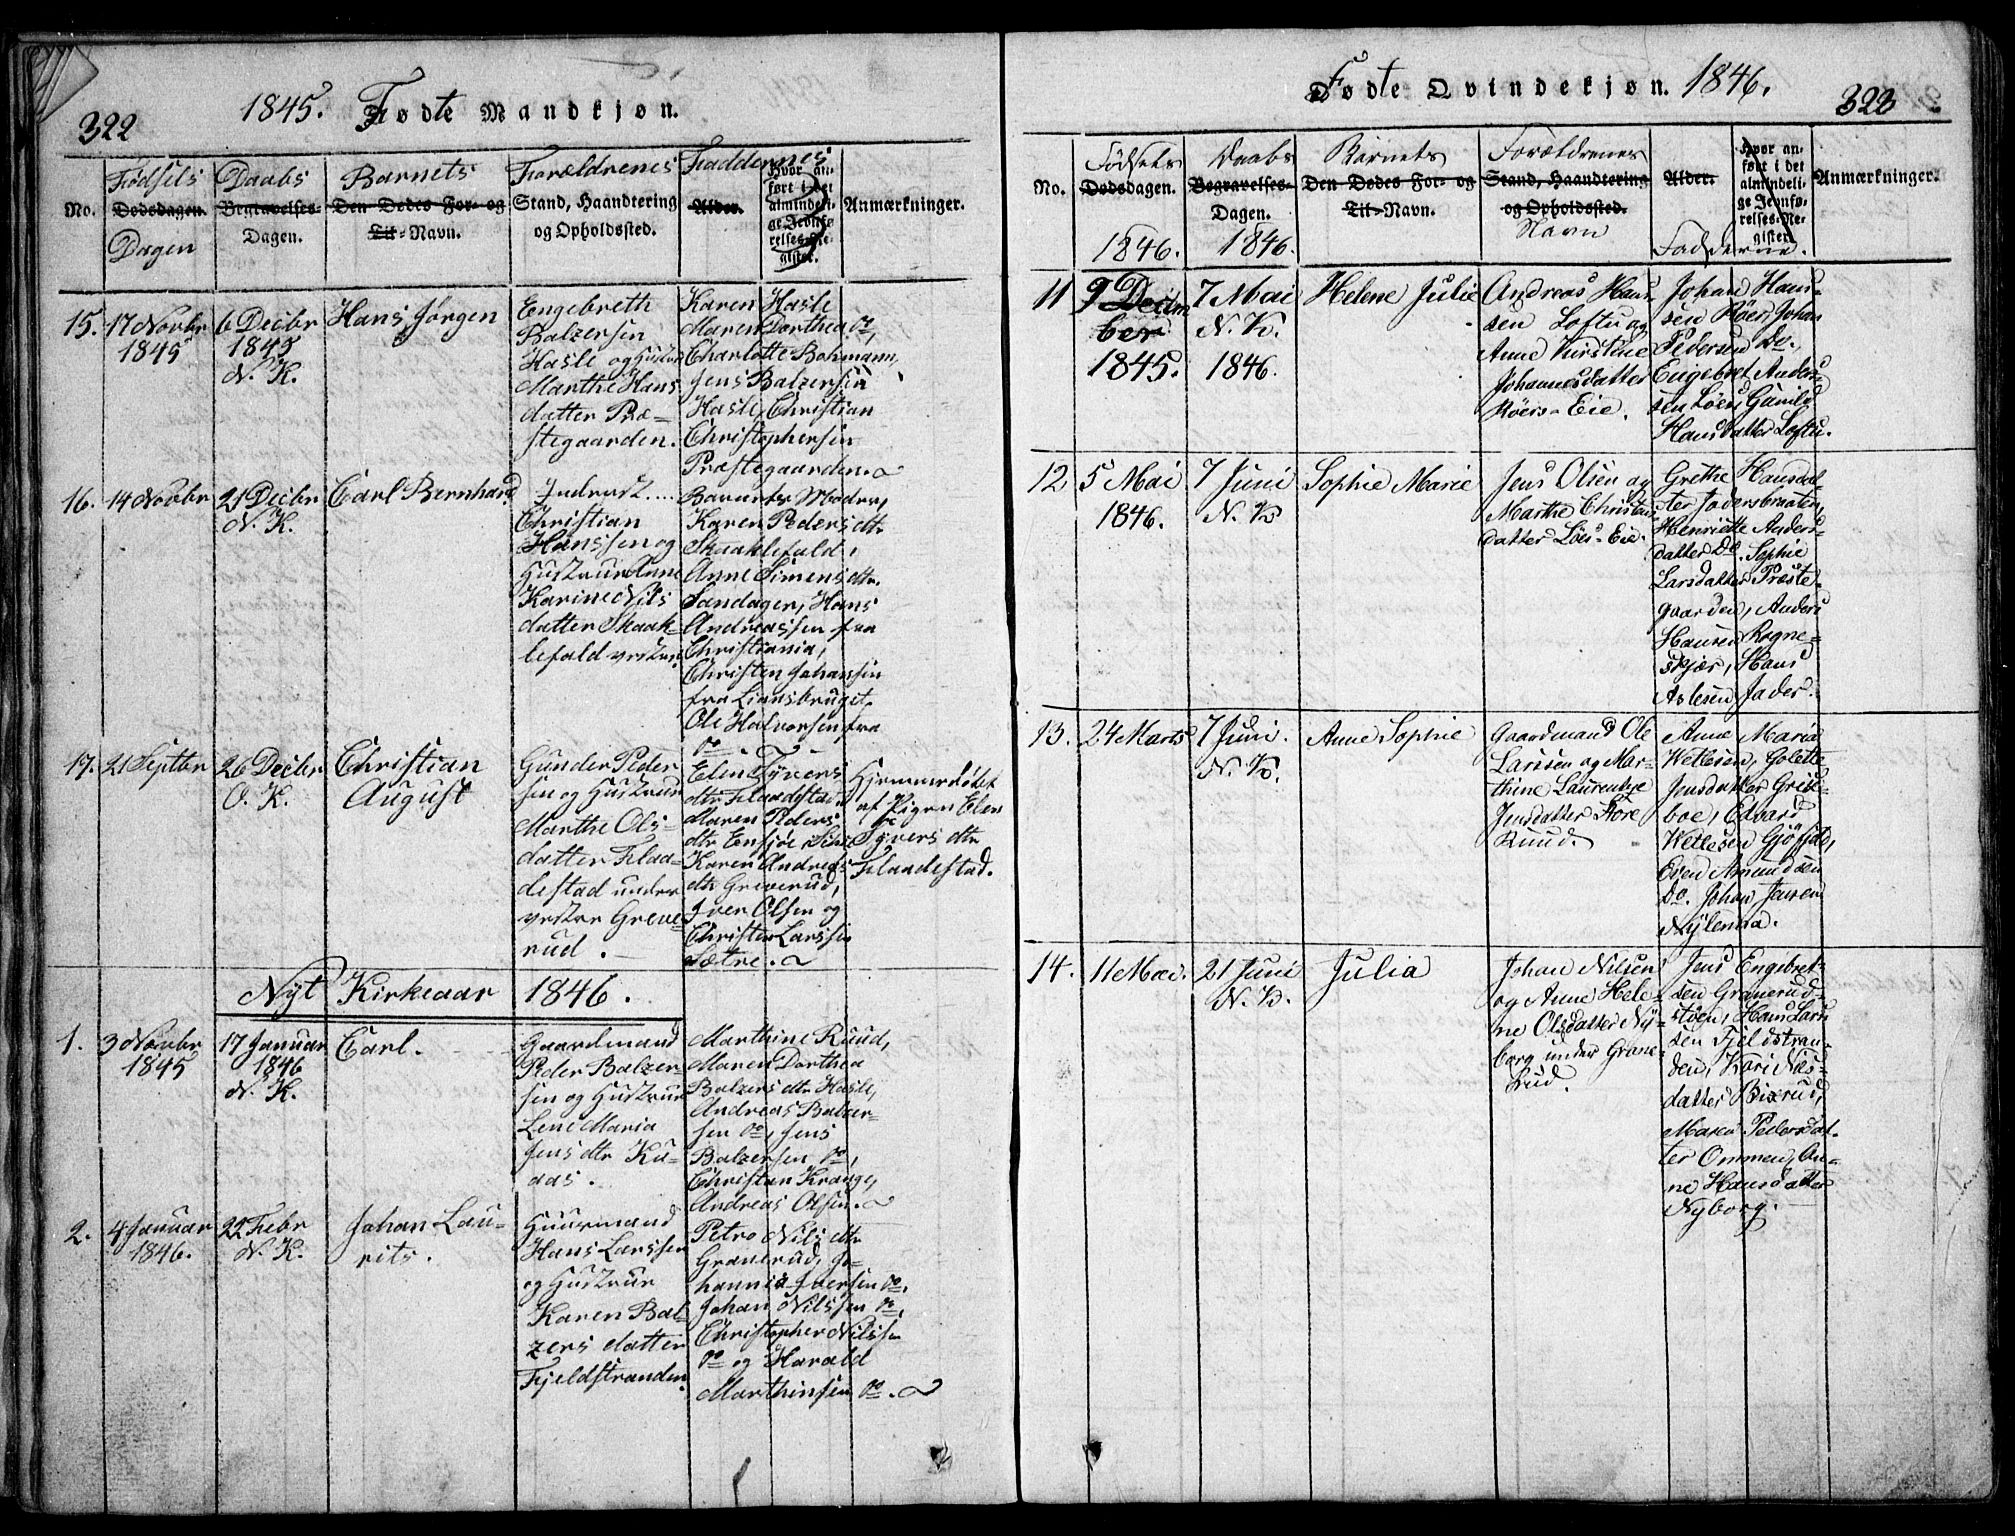 322
1845. Fødte Mandkjøn.
No.
Fødsels
Dødsdagen.
Dagen
Daabs
Begravelses-
Dagen.
Barnets
Den Dødes For- og
Til-Navn.
Forældrenes
Stand, Haandtering
og Opholdssted.
Faddernes
Alder.
Hvor an-
ført i det
almindeli-
ge Jevnfø-
relses-Re-
gister.
Anmærkninger.
15.
17 Novbr
1845
6 Decbr
1845
N. K.
Hans Jørgen
Engebreth
Balzersen
Hasle og Hustru
Marthe Hans
datter Præ-
stegaarden.
Karen Hasle
Maren Dorthea do,
Charlotte Bohmann,
Jens Balzersen
Hasle, Christian
Christophersen
Præstegaarden.
16.
14 Novbr
21 Decbr
N. K.
Carl Bernhard
Inderst....
Christian
Hanssen og
Hustrue Anne
Karine Nils
datter Skaak-
lefald vestre
Barnets Moder,
Karen Peders dtr
Skaaklefald,
Anne Simens dtr.
Sandager, Hans
Andreassen fra
Christiania,
Christen Johansen
fra Liansbruget,
Ole Halvorsen fra
do
17.
21 Septbr
26 Decbr
O. K.
Christian
August
Gunder Peder
sen og Hustrue
Marthe Ols-
datter Flaa-
destad under
vestre Greve-
rud.
Elen Syvers
dtr Flaadestad
Maren Peders
dtr Ensjøe
Karen Andreas
dtr Greverud,
Iver Olsen og
Christen Larssen
Sætre.
Hjemmedøbt
af Pigen Elen
Syvers dtr
Flaadestad.
Nyt Kirkeaar 1846.
1.
3 Novbr
1845
17 Januar
1846
N. K.
Carl.
Gaardmand
Peder Balzer-
sen og Hustrue
Lene Maria
Jens dtr Ku-
aas.
Marthine Ruud,
Maren Dorthea
Balzers dtr Hasle,
Andreas Balzer-
sen do, Jens
Balzersen do,
Christian Krange,
Andreas Olsen.
2.
4 Januar
1846.
22 Febr
N. K.
Johan Lau-
rits.
Huusmand
Hans Larssen
og Hustrue
Karen Bal-
zers datter
Fjeldstranden.
Petro Nils dtr
Graverud, Jo-
hannes Iversen do,
Johan Nilssen do,
Christopher Nilssen
do og Harald
Marthinsen do.
Fødte Qvindekjøn. 1846.
323
No.
Fødsels
Dødsdagen.
1846.
Daabs
Begravelses-
Dagen.
1846.
Barnets
Den Dødes For- og
Til-Navn.
Forældrenes
Stand, Haandtering
og Opholdssted.
Navn
Alder.
Fadderne.
Hvor an-
ført i det
almindeli-
ge Jevnfø-
relses-Re-
gister.
Anmærkninger.
11
9 Decem
ber
1845.
7 Mai
N. K.
1846.
Helene Julie
Andreas Han-
sen Loftu og
Anne Kirstine
Johannesdatter
Røers-Eie.
Johan Han-
sen Röer, Johan
Pedersen Do.,
Engebret Anders-
sen Löer, Gunild
Hansdatter Loftu.
12
5 Mai
1846.
7 Juni
N. K.
Sophie Marie
Jens Olsen og
Marthe Christens
datter Löes-Eie.
Grethe Hansdat-
ter Jadersbraaten,
Henriette Anders-
datter Do. Sophie
Larsdatter Præste-
gaarden, Anders
Hansen Rogne-
skjær, Hans
Aslesen Jader.
13.
24 Marts
7 Juni.
N. K.
Anne Sophie
Gaardmand Ole
Larssen og Mar-
thine Laurentze
Jensdatter Store
Ruud.
Anne Maria
Wetlesen, Golette
Jensdatter Gribs-
boe, Edvard
Wetlesen Gjöfjel,
Even Amundsen
Do. Johan Jansen
Nylenna.
14.
11 Mai.
21 Juni
N. K.
Julia
Johan Nilsen
og Anne Hele-
ne Olsdatter Ny-
borg under Grane-
Rud.
Jens Engebret-
sen Granerud-
støen, Hans Lars
sen Fjeldstran-
den, Kari Nils-
datter Bixrud,
Maren Pedersdat-
ter Ommen, An-
ne Hansdatter
Nyborg.